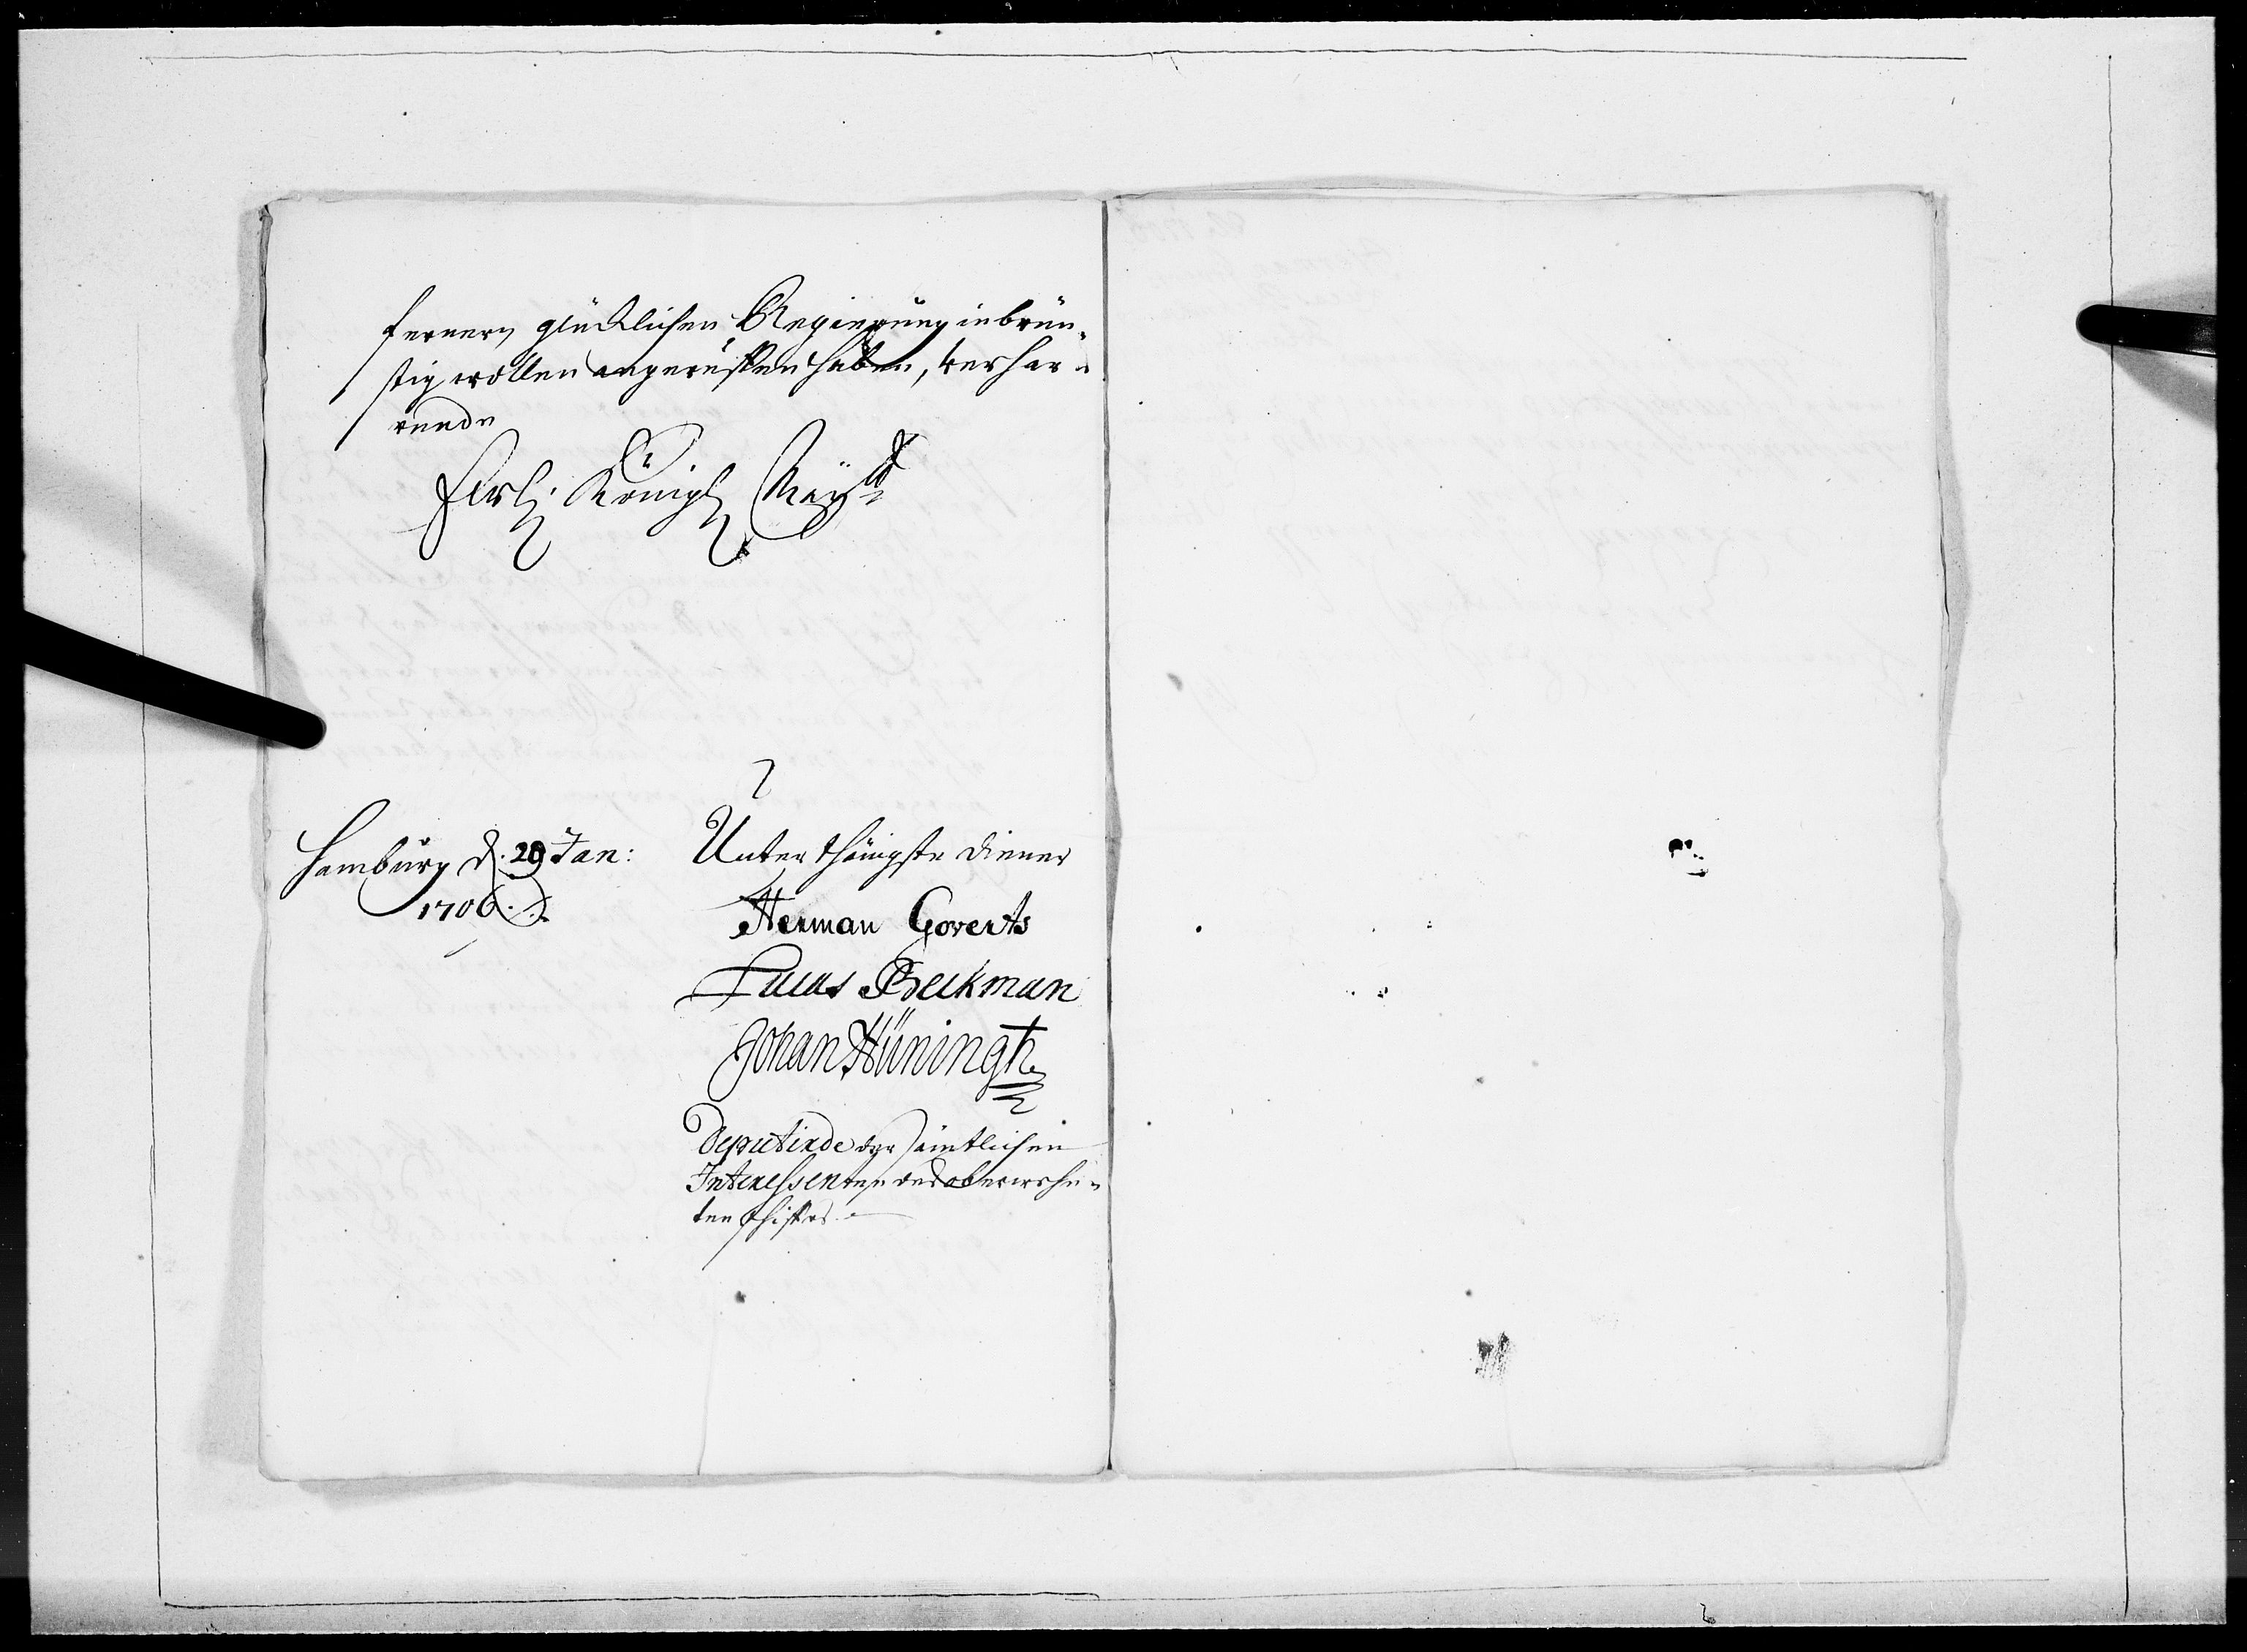 fernern glücklichen Regierung inbrün-
stig wollen angeruffen haben, verhar-
rende
Ewr: Königl: Mayt:
Hamburg d. 29 Jan:
1706.
Unterthänigste Diener
Herman Goverts
Lucas Beckman
Johan Hüningk
Deputirde der sämtlichen
Interessenten des oberwehn-
ten Schiffes